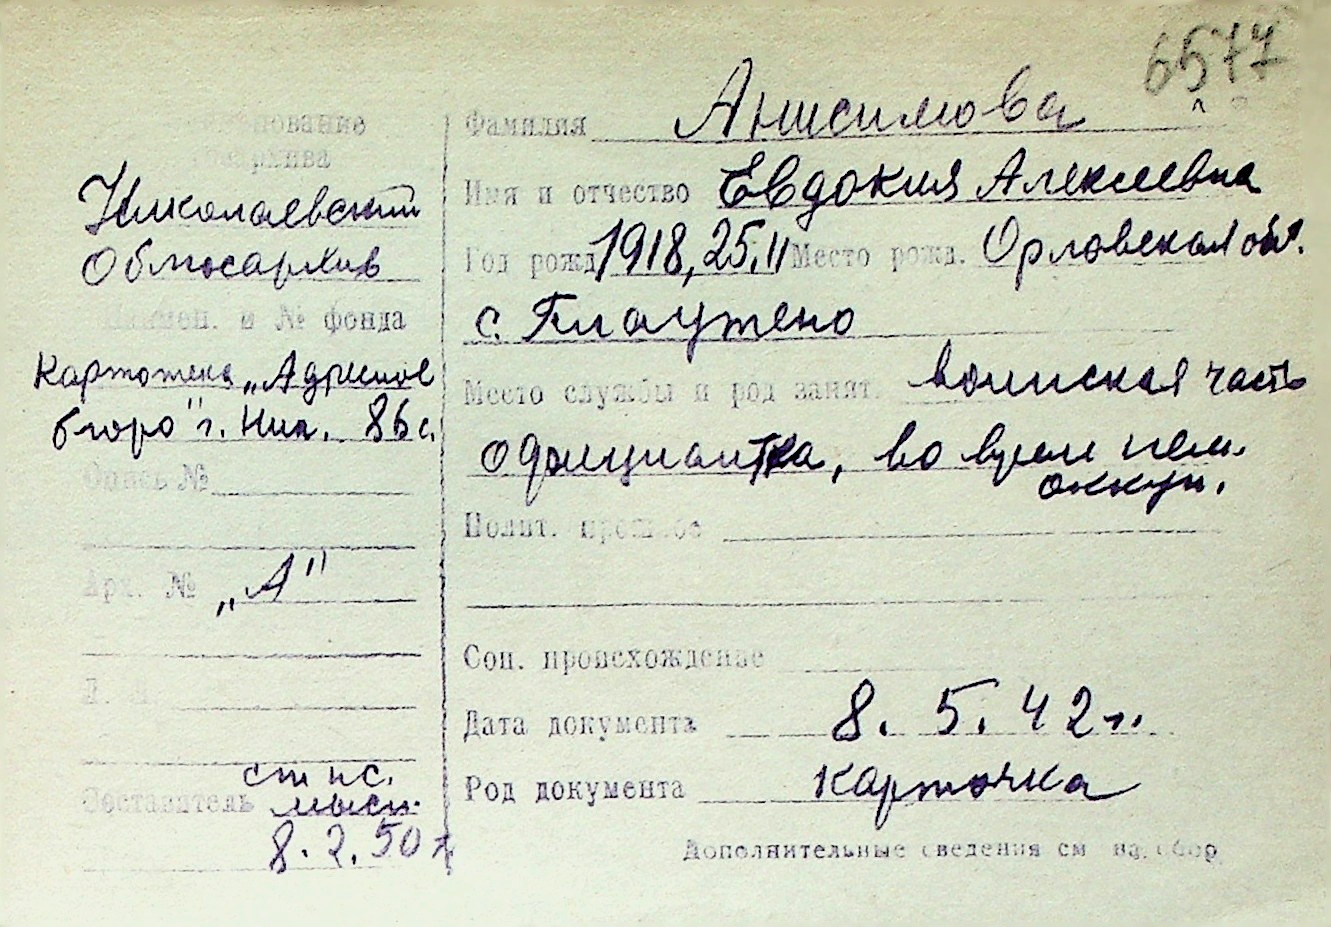 6577
Фамилия Анисимова
Имя и отчество Евдокия Алексеевна
Год рожд. 1918, 25.11 Место рожд. Орловская обл.
с. Плаутено
Место службы и род занят. воинская часть
официантка, во врем нем.
оккуп.
Полит. прошлое
Соц. происхождение
Дата документа 8. 5. 42 г.
Род документа карточка
Дополнительные сведения см на обор
Наименование
госархива
Николаевский
Облгосархив
Наимен. и № фонда
Картотека „Адресное
бюро" г. Ник. 86 с.
Опись №
Арх. № „А"
Л. Л.
ст н.с.
Составитель
8. 2. 50 г